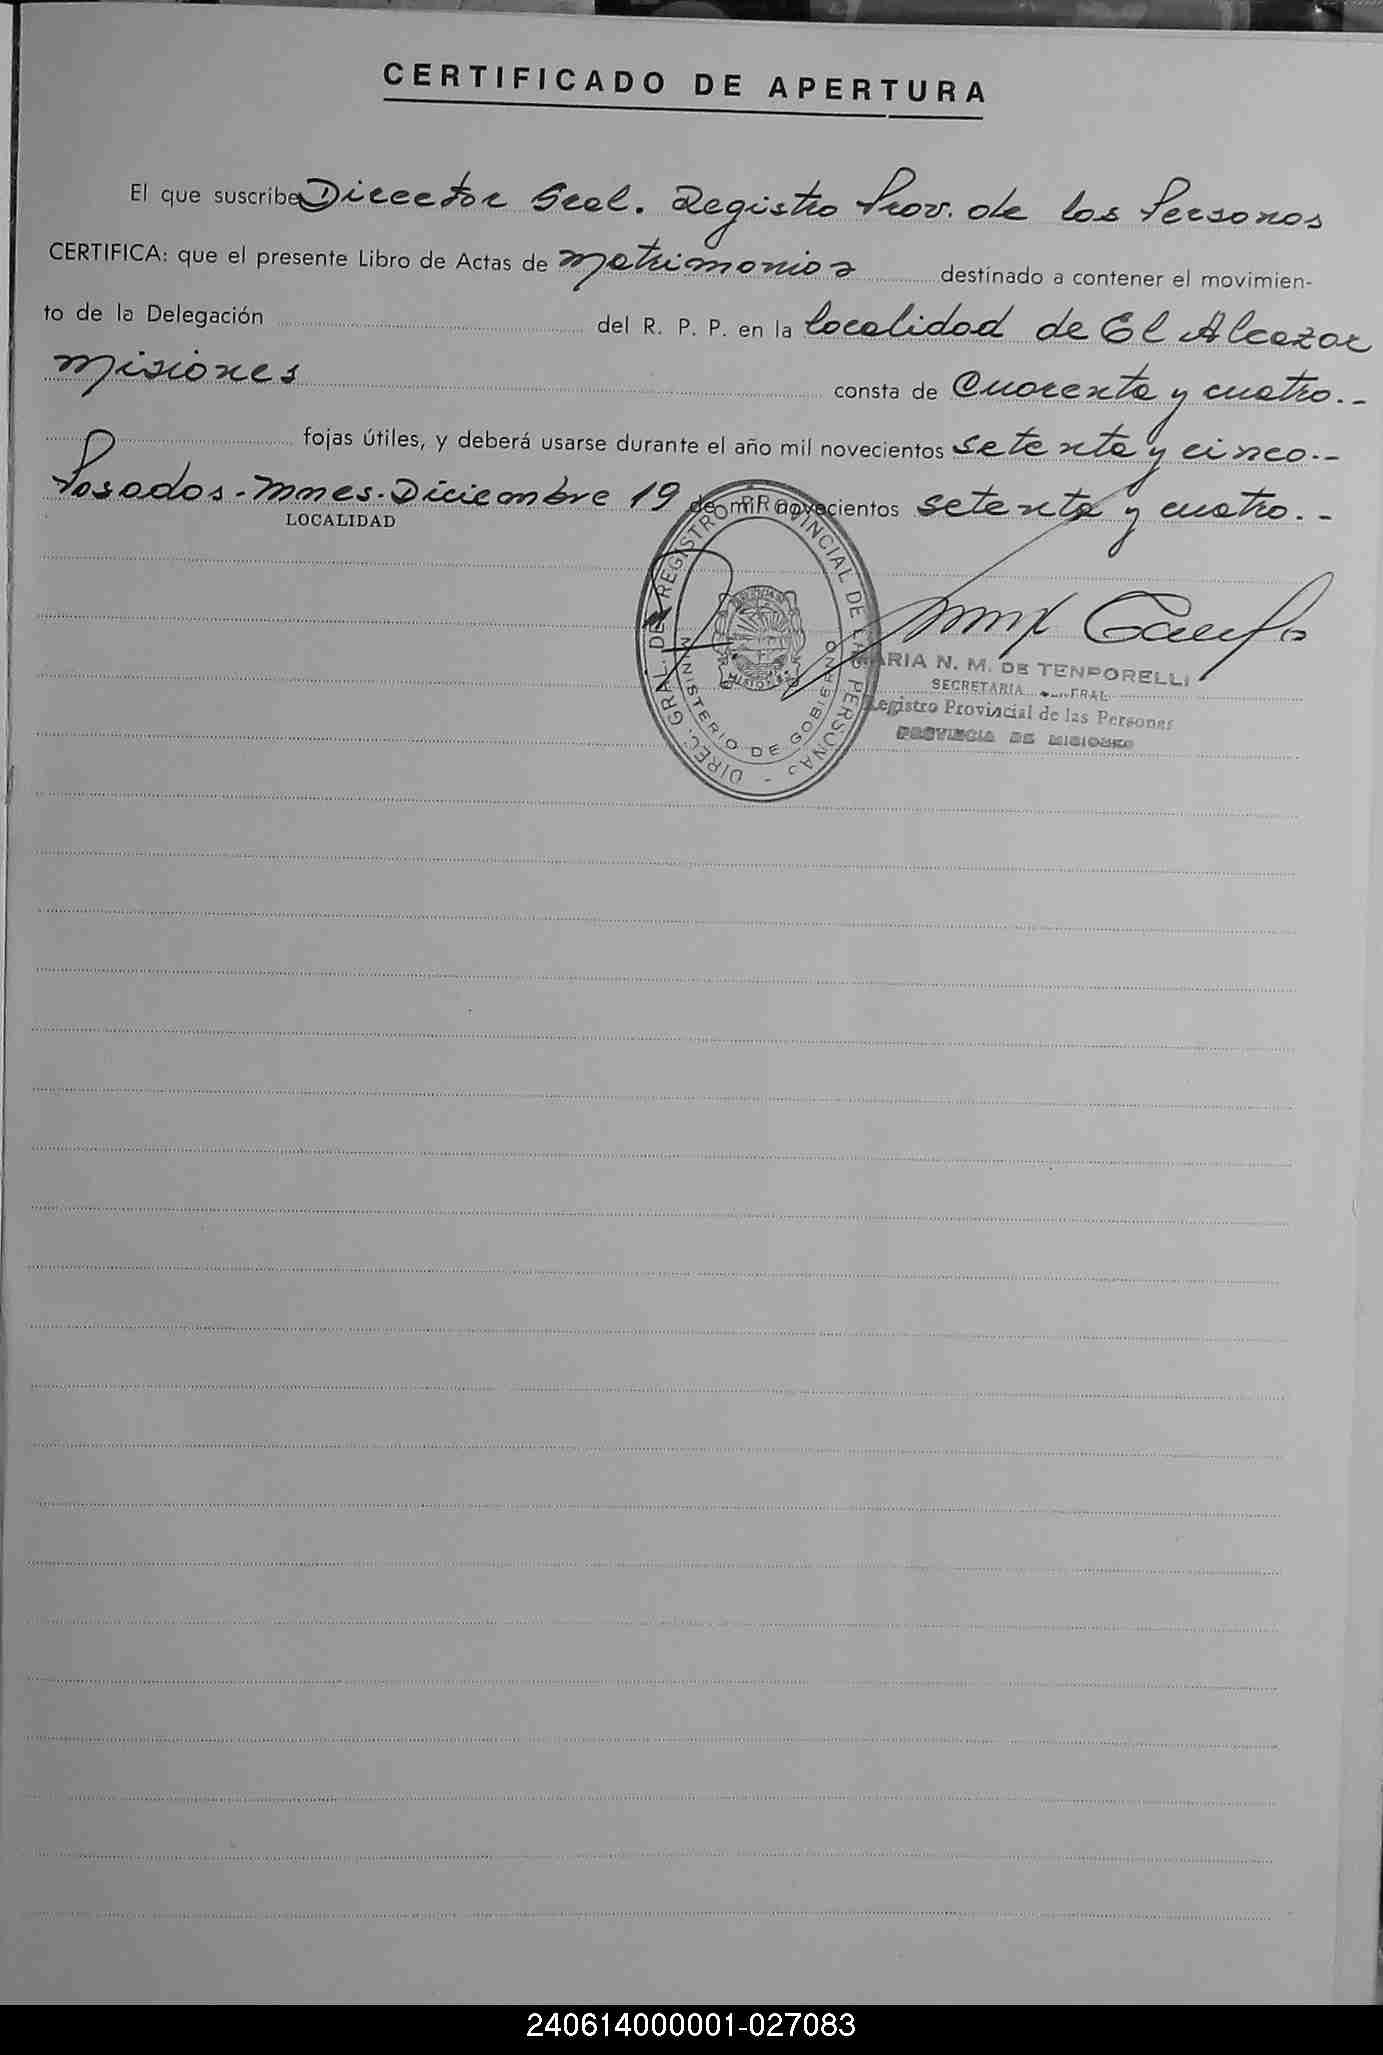 CERTIFICADO DE APERTURA
El que suscribe Director Gral. Registro Prov. de los Personas
CERTIFICA: que el presente Libro de Actas de Matrimonios destinado a contener el movimien-
to de la Delegación del R. P. P. en la localidad de El Alcazar
Misiones consta de Cuarenta y cuatro.--
fojas útiles, y deberá usarse durante el año mil novecientos setenta y cinco.--
Posadas-Mnes-Diciembre 19 de mil novecientos setenta y cuatro.--
LOCALIDAD
DIREC. GRAL. DEL REGISTRO PROVINCIAL DE LAS PERSONAS -
MINISTERIO DE GOBIERNO
MISIONES
MARIA N. M. DE TENPORELLI
SECRETARIA
Registro Provincial de las Personas
PROVINCIA DE MISIONES
240614000001-027083